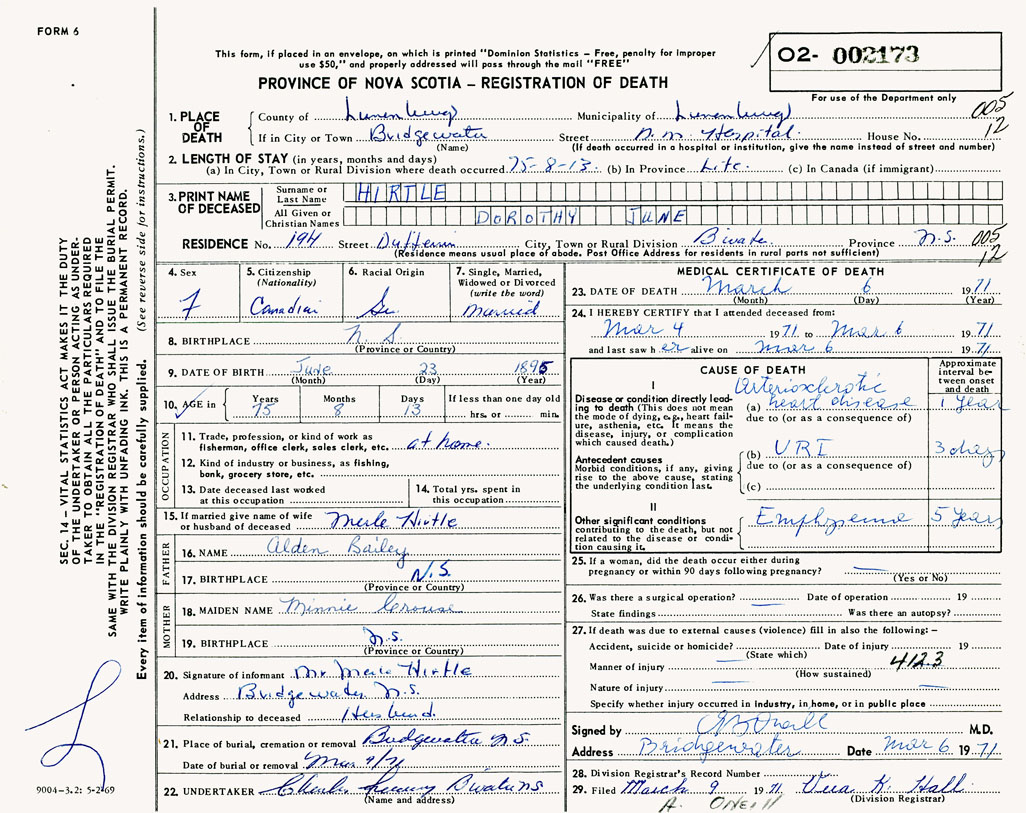 FORM 6
This form, if placed in an envelope, on which is printed "Dominion Statistics – Free, penalty for improper
use $50," and properly addressed will pass through the mail "FREE"
O2- 002173
PROVINCE OF NOVA SCOTIA – REGISTRATION OF DEATH
For use of the Department only
1. PLACE OF DEATH
County of Lunenburg Municipality of Lunenburg 005
If in City or Town Bridgewater Street D.M. Hospital House No. 12
(Name) (If death occurred in a hospital or institution, give the name instead of street and number)
2. LENGTH OF STAY (in years, months and days)
(a) In City, Town or Rural Division where death occurred 75-8-13 (b) In Province Life (c) In Canada (if immigrant)
3. PRINT NAME OF DECEASED
Surname or Last Name HIRTLE
All Given or Christian Names DOROTHY JUNE
RESIDENCE No. 194 Street Dufferin City, Town or Rural Division B'water Province N.S. 005
(Residence means usual place of abode. Post Office Address for residents in rural parts not sufficient) 12
4. Sex F
5. Citizenship (Nationality) Canadian
6. Racial Origin
7. Single, Married, Widowed or Divorced (write the word) Married
8. BIRTHPLACE N. S
(Province or Country)
9. DATE OF BIRTH June 23 1895
(Month) (Day) (Year)
10. AGE in Years Months Days If less than one day old
75 8 13 hrs. or min.
OCCUPATION
11. Trade, profession, or kind of work as fisherman, office clerk, sales clerk, etc. at home.
12. Kind of industry or business, as fishing, bank, grocery store, etc.
13. Date deceased last worked at this occupation
14. Total yrs. spent in this occupation
15. If married give name of wife or husband of deceased Merle Hirtle
FATHER
16. NAME Alden Bailey
17. BIRTHPLACE N.S.
(Province or Country)
MOTHER
18. MAIDEN NAME Minnie Crouse
19. BIRTHPLACE N.S.
(Province or Country)
20. Signature of informant Mr Merle Hirtle
Address Bridgewater N.S.
Relationship to deceased Husband
21. Place of burial, cremation or removal Bridgewater N.S.
Date of burial or removal Mar 9/71
22. UNDERTAKER
(Name and address)
MEDICAL CERTIFICATE OF DEATH
23. DATE OF DEATH March 6 1971
(Month) (Day) (Year)
24. I HEREBY CERTIFY that I attended deceased from:
Mar 4 1971 to Mar 6 1971
and last saw her alive on Mar 6 1971
CAUSE OF DEATH
Approximate interval between onset and death
I
Disease or condition directly leading to death (This does not mean the mode of dying, e.g., heart failure, asthenia, etc. It means the disease, injury, or complication which caused death.)
(a) Arteriosclerotic heart disease 1 Year
due to (or as a consequence of)
Antecedent causes
Morbid conditions, if any, giving rise to the above cause, stating the underlying condition last.
(b) URI 3 days
due to (or as a consequence of)
(c)
II
Other significant conditions contributing to the death, but not related to the disease or condition causing it.
Emphysema 5 Years
25. If a woman, did the death occur either during
pregnancy or within 90 days following pregnancy?
(Yes or No)
26. Was there a surgical operation? Date of operation 19
State findings Was there an autopsy?
27. If death was due to external causes (violence) fill in also the following: –
Accident, suicide or homicide? Date of injury 19
(State which) 412.3
Manner of injury
(How sustained)
Nature of injury
Specify whether injury occurred in industry, in home, or in public place
Signed by M.D.
Address Bridgewater Date Mar 6 1971
28. Division Registrar's Record Number
29. Filed March 9 1971 Vera K. Hall
(Division Registrar)
A. ONEILL
SEC. 14 – VITAL STATISTICS ACT MAKES IT THE DUTY
OF THE UNDERTAKER OR PERSON ACTING AS UNDER-
TAKER TO OBTAIN ALL THE PARTICULARS REQUIRED
IN THE "REGISTRATION OF DEATH" AND TO FILE THE
SAME WITH THE DIVISION REGISTRAR WHO SHALL ISSUE THE BURIAL PERMIT.
WRITE PLAINLY WITH UNFADING INK. THIS IS A PERMANENT RECORD.
Every item of information should be carefully supplied. (See reverse side for instructions.)
9004-3.2: 5-2-69